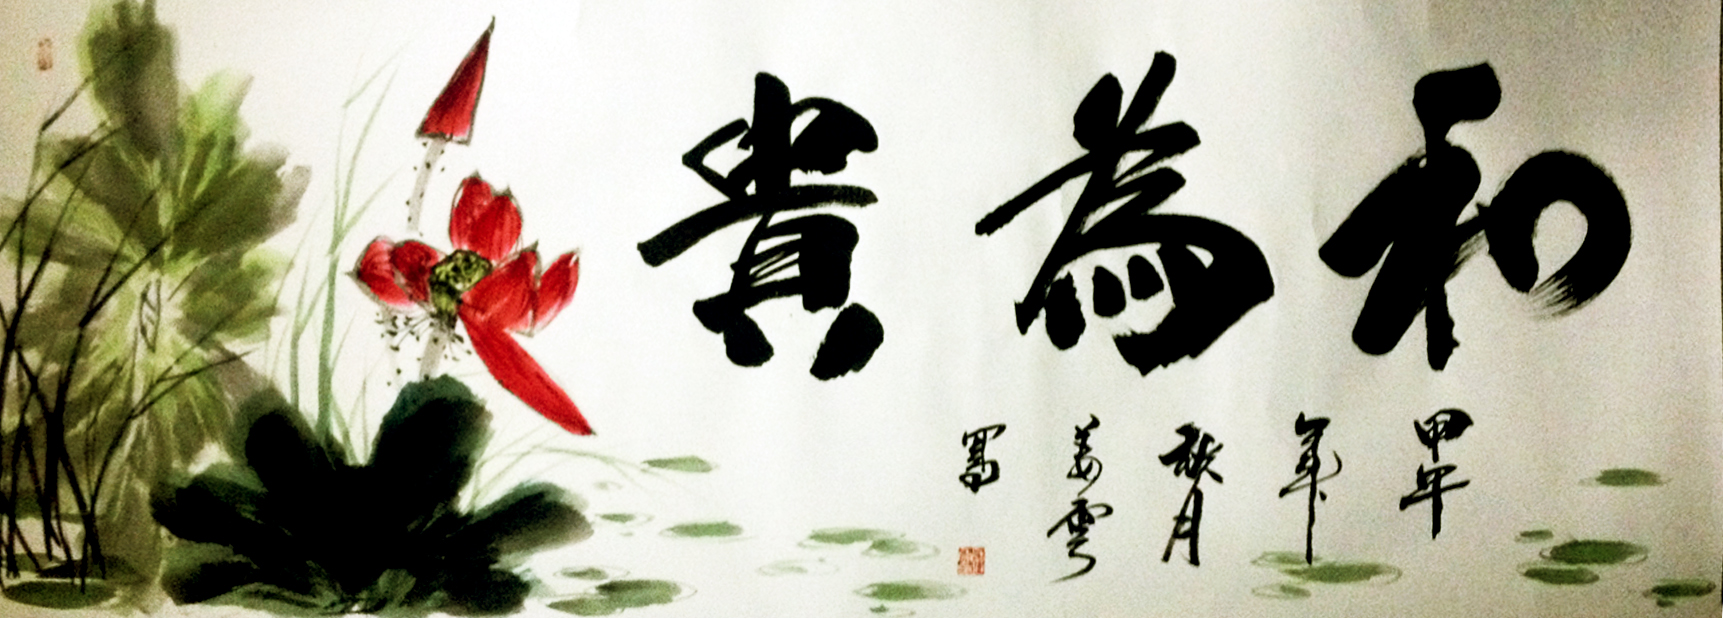 和為貴
甲午
年
秋月
姜雲
寫